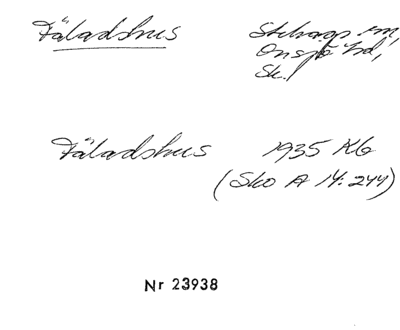 Fäladshus Stehag sn,
Onsjö hd,
Sk.
Fäladshus 1935 KG
(Sko A 14: 244)
Nr 23938